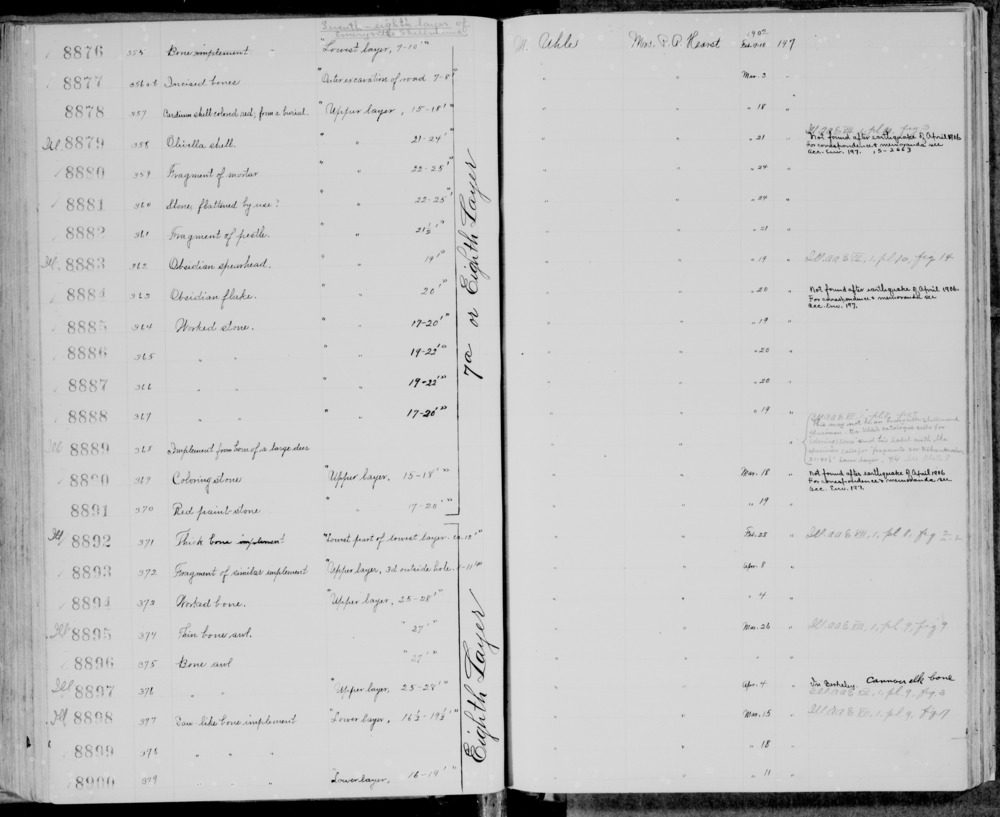 Seventh-eighth layer of
Emeryville Shellmound
8876 355 Bone implement " "Lowest layer, 9-10'" M. Uhle Mrs. P. A. Hearst 1902 147
8877 Incised bones "Outer excavation of road 7-8' " Mar. 3 "
8878 357 Cardium shell colored red; from a burial. " Upper layer, 15-18' " " " " 18 "
Ill 8879 358 Olivella shell. " " 21-24' " " " 21 "
Not found after earthquake of April 1906
For correspondence & memoranda see
acc. Env. 197.
8880 359 Fragment of mortar " " 22-25' " " " 24 "
8881 360 Stone, flattened by use? " " 22-25' " " " 24 "
8882 361 Fragment of pestle. " " 21½' " " " 21 "
Ill. 8883 362 Obsidian spearhead. " " 19'" " " " 19 " Ill. aa & E VII, 1, pl. 10, fig 14
8884 363 Obsidian flake. " " 20' " " " 20 "
Not found after earthquake of April 1906.
For correspondence & memoranda see
acc. Env. 197.
8885 364 Worked stone. " " 17-20'" " " " 19 "
8886 365 " " " " 19-22'" " " " 20 "
8887 366 " " " " 19-22'" " " " 20 "
8888 367 " " " " 17-20'" " " " 19 "
7a or Eighth Layer
Ill 8889 368 Implement from horn of a large deer
8890 369 Coloring stone "Upper layer, 15-18'" " " Mar. 18 "
Not found after earthquake of April 1906
For correspondence & memoranda see
acc. Env. 197.
8891 370 Red paint-stone " " 17-20' " " " 19 "
Ill 8892 371 Thick bone implement "Lowest part of lowest layer. " " Feb. 28 " Ill. aa & E VII, 1, pl. 8, fig
8893 372 Fragment of similar implement "Upper layer, 3d outside hole. " " Apr. 8 "
8894 373 Worked bone. "Upper layer, 25-28'" " " " 4 "
Ill 8895 374 Thin bone awl. " 27' " " " Mar. 26 " Ill. aa & E VII, 1, pl. 9, fig 9
8896 375 Bone awl " 27' " " " " "
Ill 8897 376 " " "Upper layer, 25-28'" " " Apr. 4 " In Berkeley. Cannon elk bone
Ill aa & E VII, 1, pl. 9, fig. 3
Ill 8898 377 Saw-like bone implement "Lower layer, 16½-19½' " " " Mar. 15 " Ill aa & E VII, 1, pl 9, fig 17
8899 378 " " " " " " 18 "
8900 379 " " " "Lower layer, 16-19' " " " " 11 "
Eighth Layer